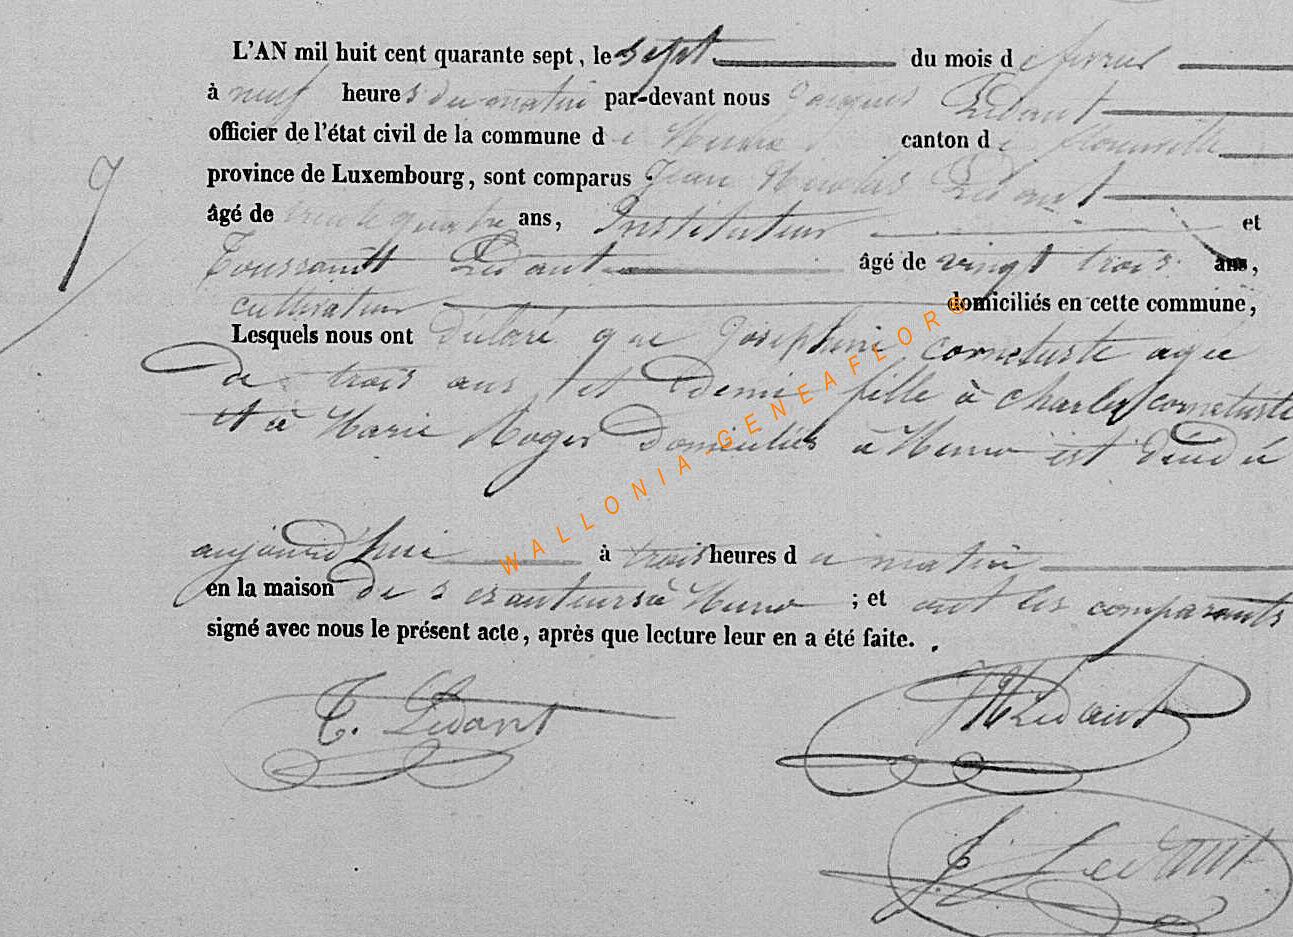 L'AN mil huit cent quarante sept, le sept du mois de fevrier
à neuf heures du matin par-devant nous Jacques Ledant
officier de l'état civil de la commune de canton de
province de Luxembourg, sont comparus Jean Nicolas Ledant
âgé de trente quatre ans, Instituteur et
Toussaint Ledant âgé de vingt trois ans,
cultivateur domiciliés en cette commune,
Lesquels nous ont déclaré que Josephine cornetuste agée
de trois ans et demi fille à charles cornetuste
et à Marie Roger domiciliés à est décédé
aujourd'hui à trois heures du matin
en la maison de ses auteurs à ; et ont les comparants
signé avec nous le présent acte, après que lecture leur en a été faite.
T. Ledant
JNLedant
J. Ledant
WALLONIA-GENEAFLOR®